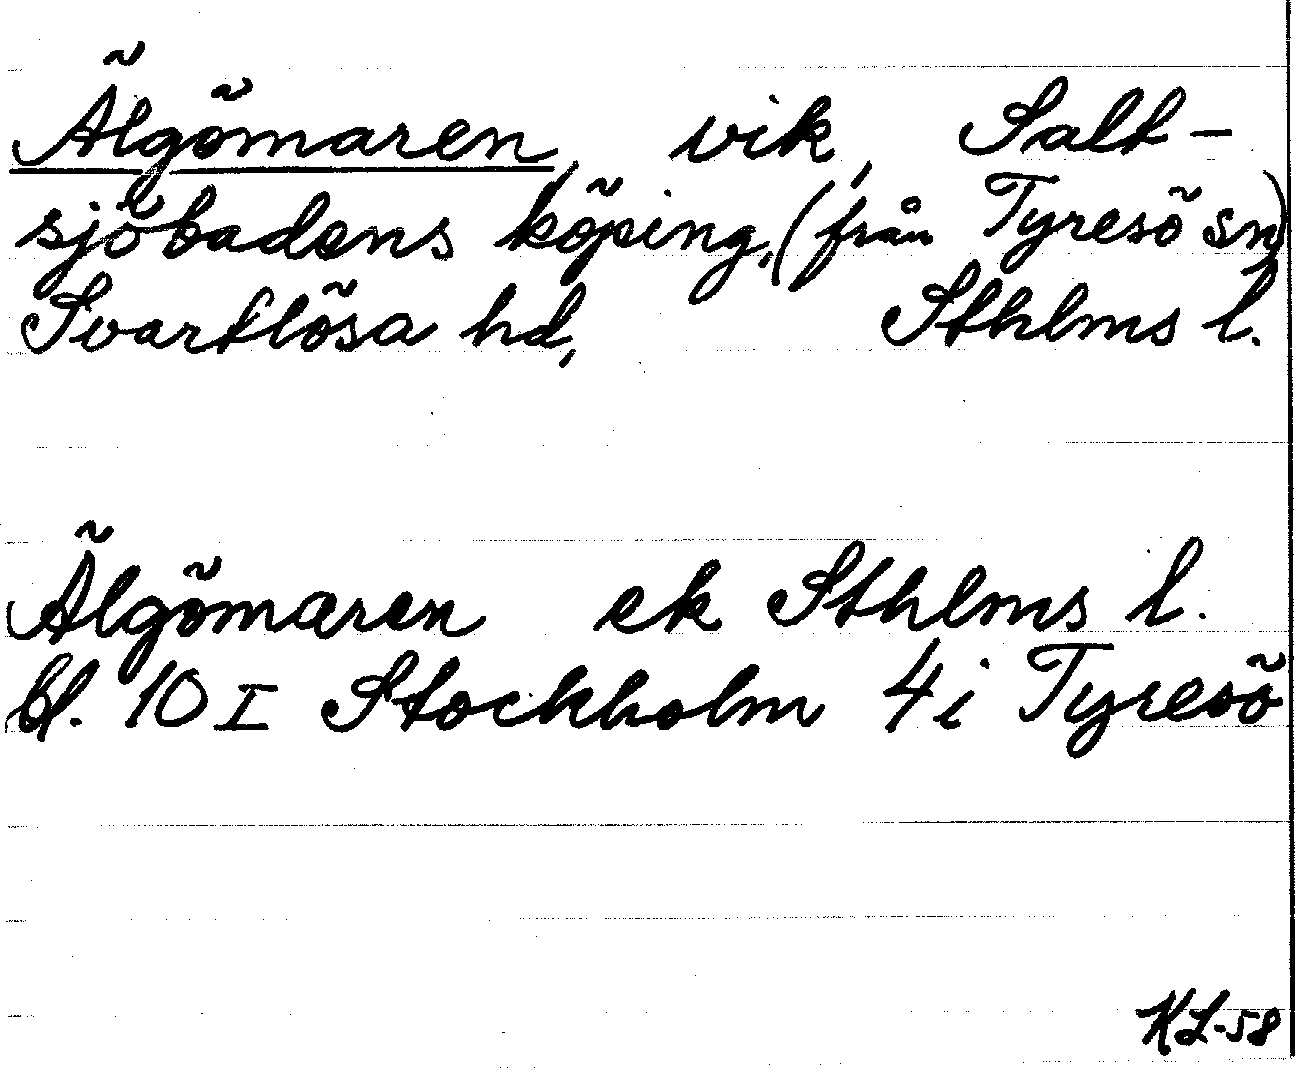 Älgömaren, vik, Salt-
sjöbadens köping, (från Tyresö sn)
Svartlösa hd, Sthlms l.
Älgömaren ek Sthlms l.
bl. 10 I Stockholm 4 i Tyresö
KL-58